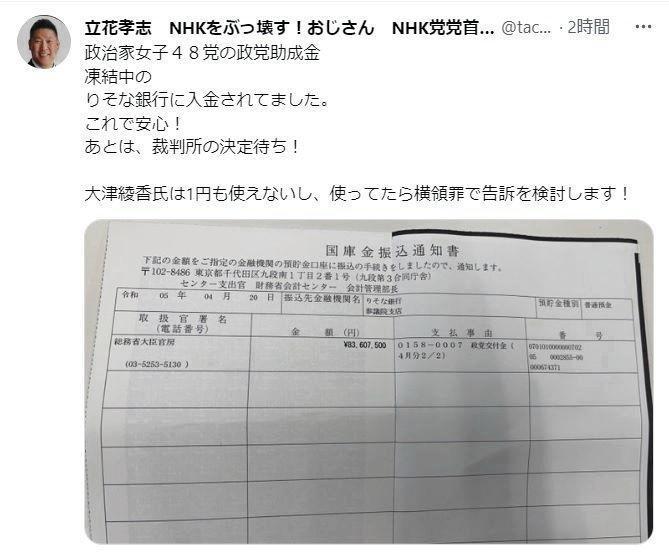 立花孝志　NHKをぶっ壊す！おじさん　NHK党党首... @tac... · 2時間
政治家女子４８党の政党助成金
凍結中の
りそな銀行に入金されてました。
これで安心！
あとは、裁判所の決定待ち！
大津綾香氏は1円も使えないし、使ってたら横領罪で告訴を検討します！
国庫金振込通知書
下記の金額をご指定の金融機関の預貯金口座に振込の手続きをしましたので、通知します。
〒102-8486 東京都千代田区九段南１丁目２番１号（九段第３合同庁舎）
センター支出官　財務省会計センター　会計管理部長
令和　05　年　04　月　20　日 振込先金融機関名 りそな銀行 預貯金種別 普通預金
参議院支店
取扱官署名 金　額（円） 支　払　事　由 番　号
（電話番号）
総務省大臣官房 ¥83,607,500 ０１５８－０００７　政党交付金（ 0701010000000702
４月分２／２） 05　0002855-00
(03-5253-5130 ) 000674371